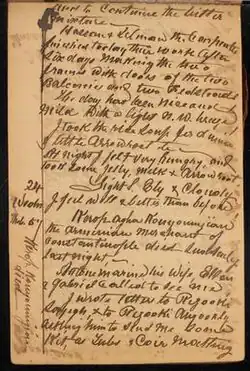 and to continue the bitter
mixture
Hassoon & Silman the Carpenters
finished today their work after
six days making the two
frames with doors of the two
Balconies and two Bedsteads
The day has been nice and
mild with a light N. W. breeze
I took the rice soup for dinner
& little Arrowroot
At night felt very hungry, and
took some jelly, milk & arrowroot
24 Light S. Ely & Cloudy
I feel well & better than before
Korop Agha Kouyoumjian
the Armenian Merchant of
Constantinople died suddenly
last night
Antone Marine his wife Ellen
& Gabriel called to see me
I wrote letter to Rezooki
Sayigh & to Rezooki Angoorly
asking him to send me some
Kit as Tubs & Coir Matting
Kouyoumjian
died